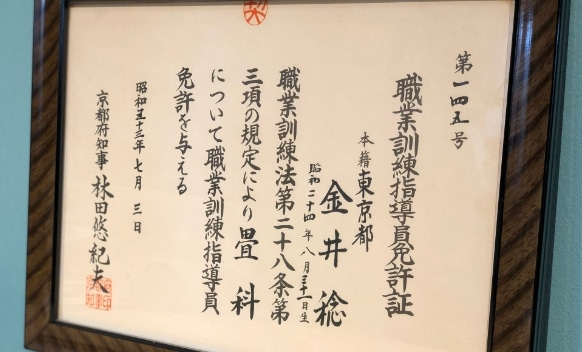 第一四五号
職業訓練指導員免許証
本籍東京都
金井稔
昭和二十四年八月三十一日生
職業訓練法第二十八条第
三項の規定により畳科
について職業訓練指導員
免許を与える
昭和五十三年七月三日
京都府知事林田悠紀夫